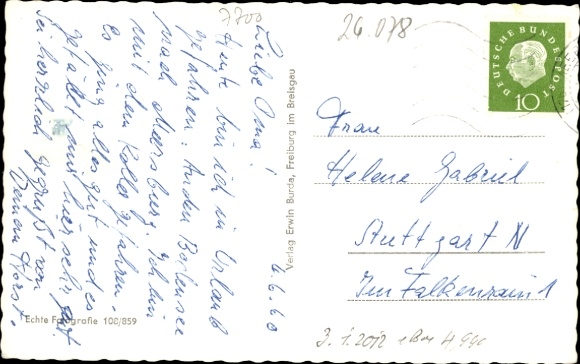 7700
26.078
DEUTSCHE BUNDESPOST
10
6.6.60
Liebe Oma!
Heute bin ich in Urlaub
gefahren. An den Bodensee
nach Meersburg. Ich bin
mit dem Roller gefahren.
Es ging alles gut und es
gefällt mir hier sehr gut.
Sei herzlich gegrüßt von
Deinem Horst.
Verlag Erwin Burda, Freiburg im Breisgau
Echte Fotografie 100/859
Frau
Helene Gabriel
Stuttgart N
Im Falkenrain 1
3.1.2012 eBay 4,90